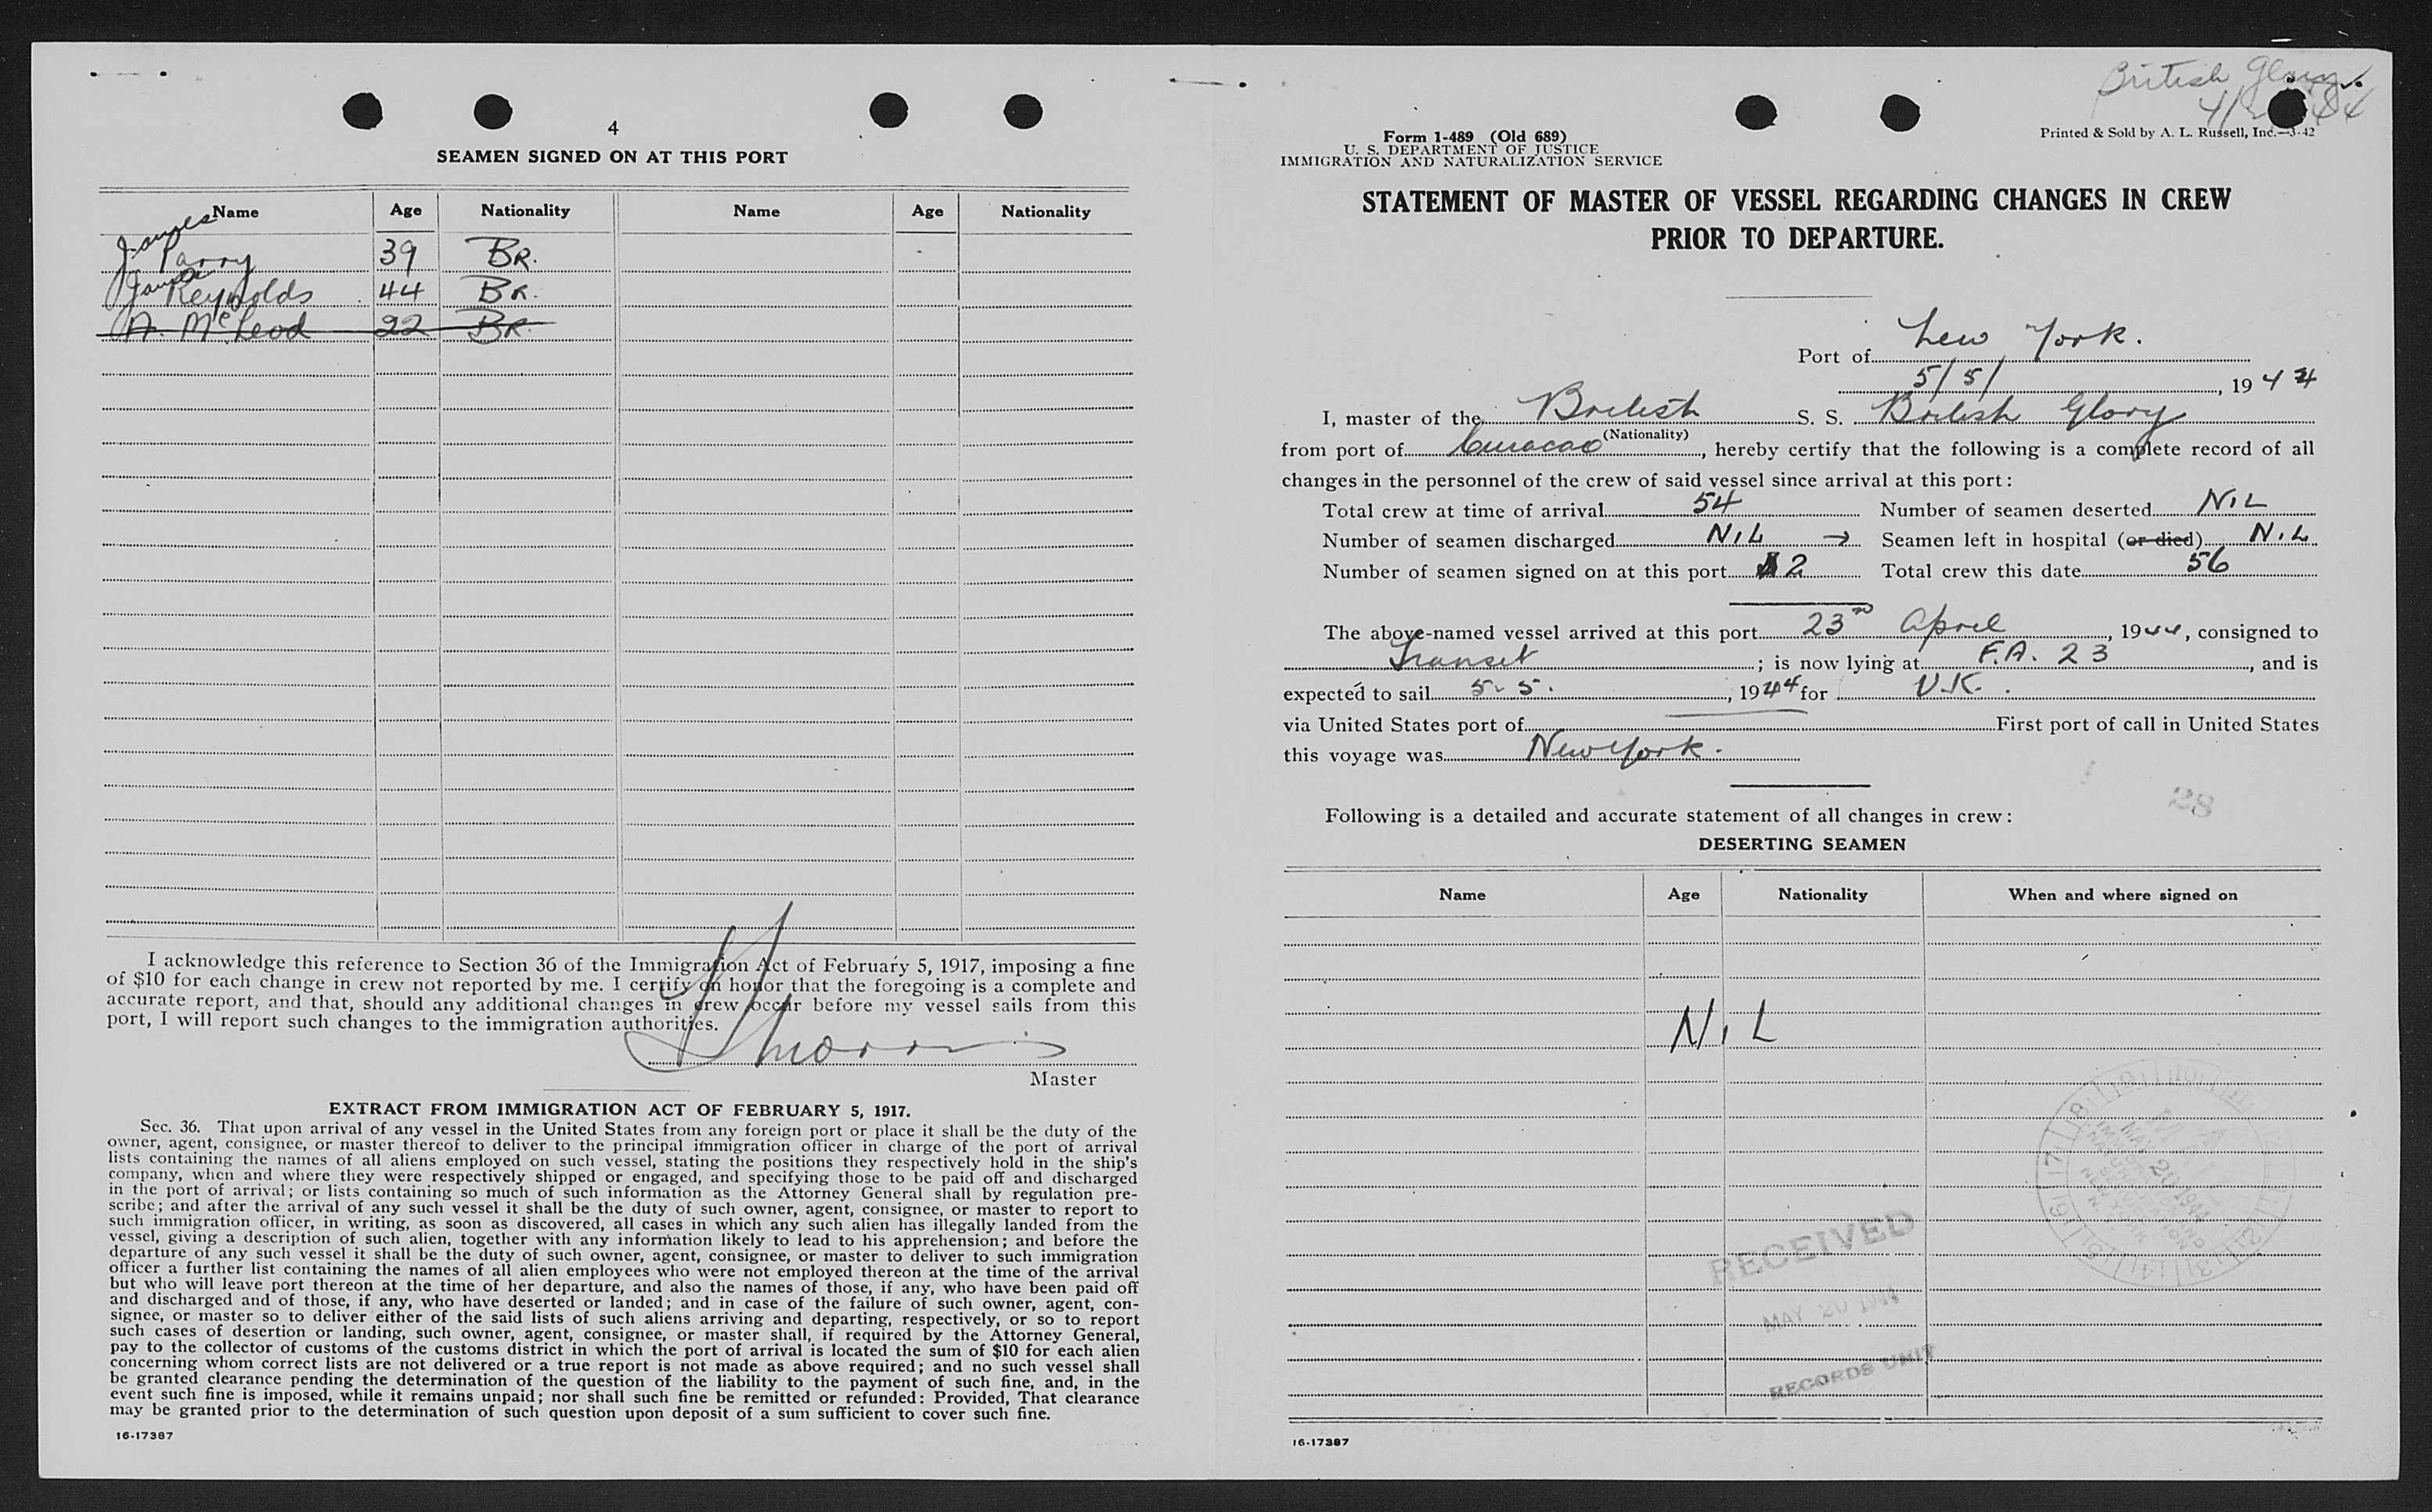 4
SEAMEN SIGNED ON AT THIS PORT
Name Age Nationality Name Age Nationality
James Parry 39 BR.
James Reynolds 44 BR.
A. McLeod 22 BR.
I acknowledge this reference to Section 36 of the Immigration Act of February 5, 1917, imposing a fine
of $10 for each change in crew not reported by me. I certify on honor that the foregoing is a complete and
accurate report, and that, should any additional changes in crew occur before my vessel sails from this
port, I will report such changes to the immigration authorities.
Morris
Master
EXTRACT FROM IMMIGRATION ACT OF FEBRUARY 5, 1917.
Sec. 36. That upon arrival of any vessel in the United States from any foreign port or place it shall be the duty of the
owner, agent, consignee, or master thereof to deliver to the principal immigration officer in charge of the port of arrival
lists containing the names of all aliens employed on such vessel, stating the positions they respectively hold in the ship's
company, when and where they were respectively shipped or engaged, and specifying those to be paid off and discharged
in the port of arrival; or lists containing so much of such information as the Attorney General shall by regulation pre-
scribe; and after the arrival of any such vessel it shall be the duty of such owner, agent, consignee, or master to report to
such immigration officer, in writing, as soon as discovered, all cases in which any such alien has illegally landed from the
vessel, giving a description of such alien, together with any information likely to lead to his apprehension; and before the
departure of any such vessel it shall be the duty of such owner, agent, consignee, or master to deliver to such immigration
officer a further list containing the names of all alien employees who were not employed thereon at the time of the arrival
but who will leave port thereon at the time of her departure, and also the names of those, if any, who have been paid off
and discharged and of those, if any, who have deserted or landed; and in case of the failure of such owner, agent, con-
signee, or master so to deliver either of the said lists of such aliens arriving and departing, respectively, or so to report
such cases of desertion or landing, such owner, agent, consignee, or master shall, if required by the Attorney General,
pay to the collector of customs of the customs district in which the port of arrival is located the sum of $10 for each alien
concerning whom correct lists are not delivered or a true report is not made as above required; and no such vessel shall
be granted clearance pending the determination of the question of the liability to the payment of such fine, and, in the
event such fine is imposed, while it remains unpaid; nor shall such fine be remitted or refunded: Provided, That clearance
may be granted prior to the determination of such question upon deposit of a sum sufficient to cover such fine.
16-17387
British Glory
Form 1-489 (Old 689)
U. S. DEPARTMENT OF JUSTICE
IMMIGRATION AND NATURALIZATION SERVICE
Printed & Sold by A. L. Russell, Inc.—3-42
STATEMENT OF MASTER OF VESSEL REGARDING CHANGES IN CREW
PRIOR TO DEPARTURE.
Port of New York.
5/5/, 1944
I, master of the British S. S. British Glory
(Nationality)
from port of Curacao, hereby certify that the following is a complete record of all
changes in the personnel of the crew of said vessel since arrival at this port:
Total crew at time of arrival 54 Number of seamen deserted NIL
Number of seamen discharged NIL → Seamen left in hospital (or died) NIL
Number of seamen signed on at this port 2 Total crew this date 56
The above-named vessel arrived at this port 23rd April, 1944, consigned to
Transit; is now lying at F.A. 23, and is
expected to sail 5-5., 1944 for U.K.
via United States port of First port of call in United States
this voyage was New York.
28
Following is a detailed and accurate statement of all changes in crew:
DESERTING SEAMEN
Name Age Nationality When and where signed on
NIL
MAIL
MAY 20 1944
IMMIGRATION AND
NATURALIZATION
SERVICE
NEW YORK
N. Y.
RECEIVED
MAY 20 1944
RECORDS UNIT
16-17387